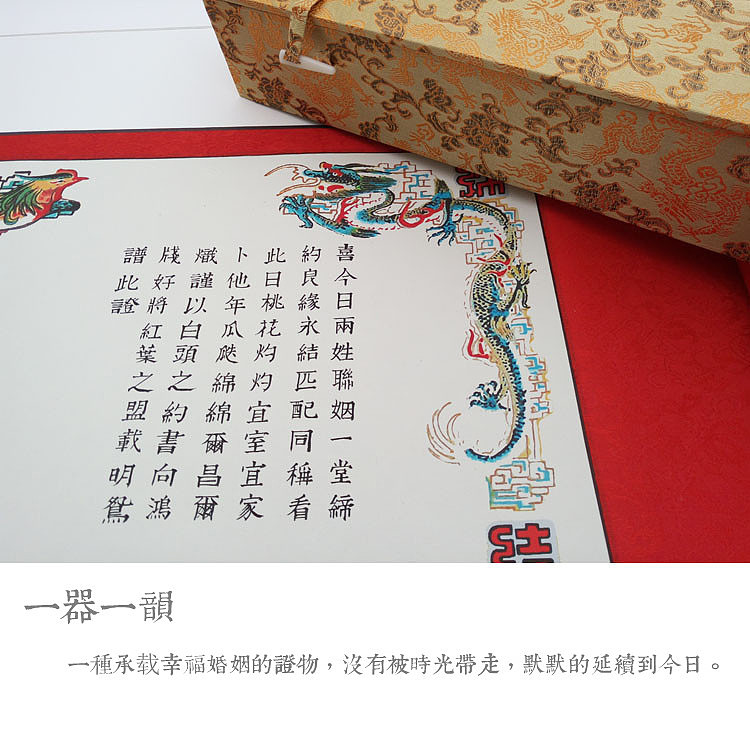 喜今日兩姓聯姻一堂締
約良緣永結匹配同稱看
此日桃花灼灼宜室宜家
卜他年瓜瓞綿綿爾昌爾
熾謹以白頭之約書向鴻
牋好將紅葉之盟載明鴛
譜此證
一器一韻
一種承载幸福婚姻的證物，沒有被時光帶走，默默的延續到今日。